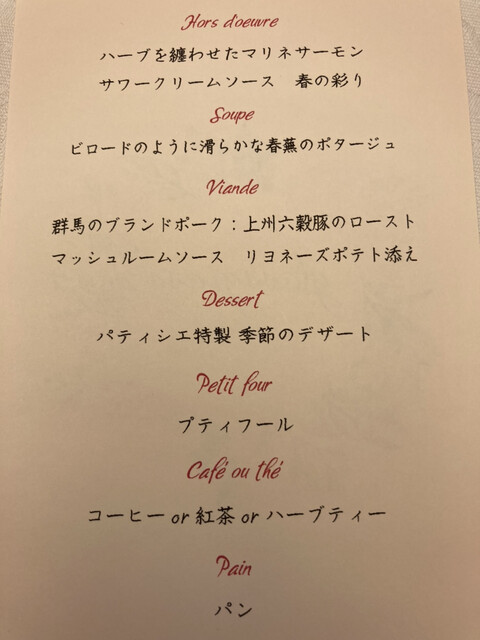 Hors d'oeuvre
ハーブを纏わせたマリネサーモン
サワークリームソース　春の彩り
Soupe
ビロードのように滑らかな春蕪のポタージュ
Viande
群馬のブランドポーク：上州六穀豚のロースト
マッシュルームソース　リヨネーズポテト添え
Dessert
パティシエ特製 季節のデザート
Petit four
プティフール
Café ou thé
コーヒー or 紅茶 or ハーブティー
Pain
パン